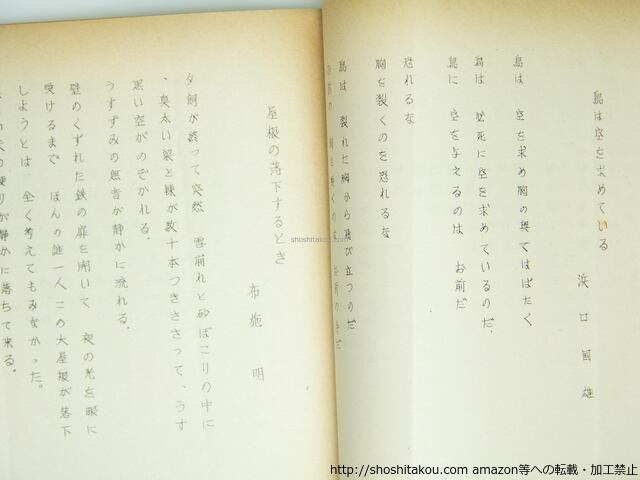 鳥は空を求めている
浜口國雄
鳥は 空を求め胸の奥ではばたく
鳥は 必死に空を求めているのだ。
鳥に 空を与えるのは お前だ
恐れるな
胸を裂くのを恐れるな
鳥は 裂れた胸から飛び立つのだ
屋根の落下するとき
布施 明
夕刻が終って突然 雪崩れと砂ぼこりの中に
、臭太い梁と棟が数十本つきささって、うす
黒い空がのぞかれる。
うすずみの無音が静かに流れる。
壁のくずれた鉄の扉を開いて 夜の光を眼に
受けるまで ほんの誰一人この大屋根が落下
しようとは 全く考えてもみなかった。
便りが静かに落ちて来る。
shoshitakou.com
http://shoshitakou.com amazon等への転載・加工禁止